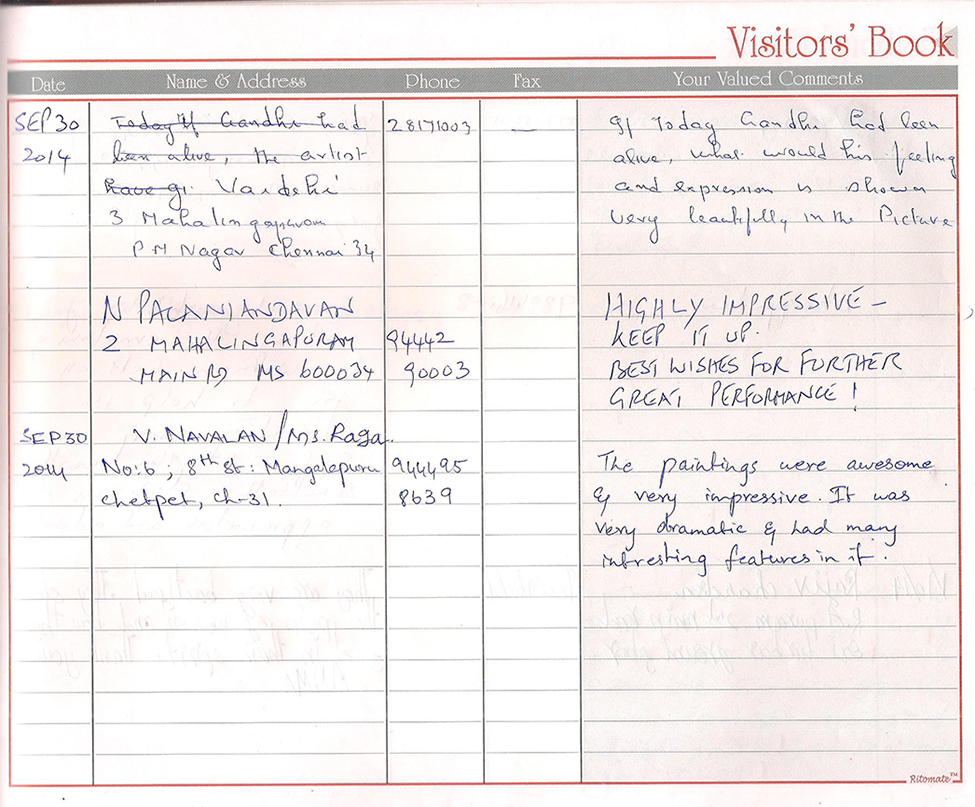 Visitors' Book
Date Name & Address Phone Fax Your Valued Comments
SEP 30 Today If Gandhi had 28171003 — If Today Gandhi had been
2014 been alive, the artist alive, what would his feeling
have gi Vaidehi and expression is shown
3 Mahalingapuram very beautifully in the Picture
P M Nagar Chennai 34
N PALANIANDAVAN HIGHLY IMPRESSIVE –
2 MAHALINGAPURAM 94442 KEEP IT UP.
MAIN RD MS 600034 90003 BEST WISHES FOR FURTHER
GREAT PERFORMANCE !
SEP 30 V. NAVALAN / MS. Raga.
2014 No: 6 ; 8th St : Mangalapuru 944495 The paintings were awesome
chetpet, ch-31. 8639 & very impressive. It was
very dramatic & had many
intresting features in it.
Ritomate™